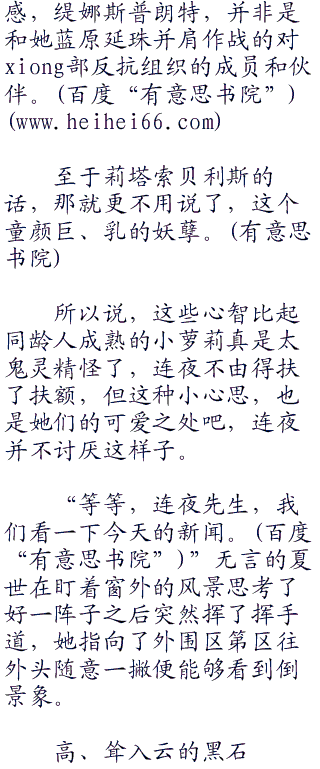 感，缇娜斯普朗特，并非是
和她蓝原延珠并肩作战的对
xiong部反抗组织的成员和伙
伴。(百度“有意思书院”)
(www.heihei66.com)
至于莉塔索贝利斯的
话，那就更不用说了，这个
童颜巨、乳的妖孽。(有意思
书院)
所以说，这些心智比起
同龄人成熟的小萝莉真是太
鬼灵精怪了，连夜不由得扶
了扶额，但这种小心思，也
是她们的可爱之处吧，连夜
并不讨厌这样子。
“等等，连夜先生，我
们看一下今天的新闻。(百度
“有意思书院”)”无言的夏
世在盯着窗外的风景思考了
好一阵子之后突然挥了挥手
道，她指向了外围区第区往
外头随意一撇便能够看到倒
景象。
高、耸入云的黑石